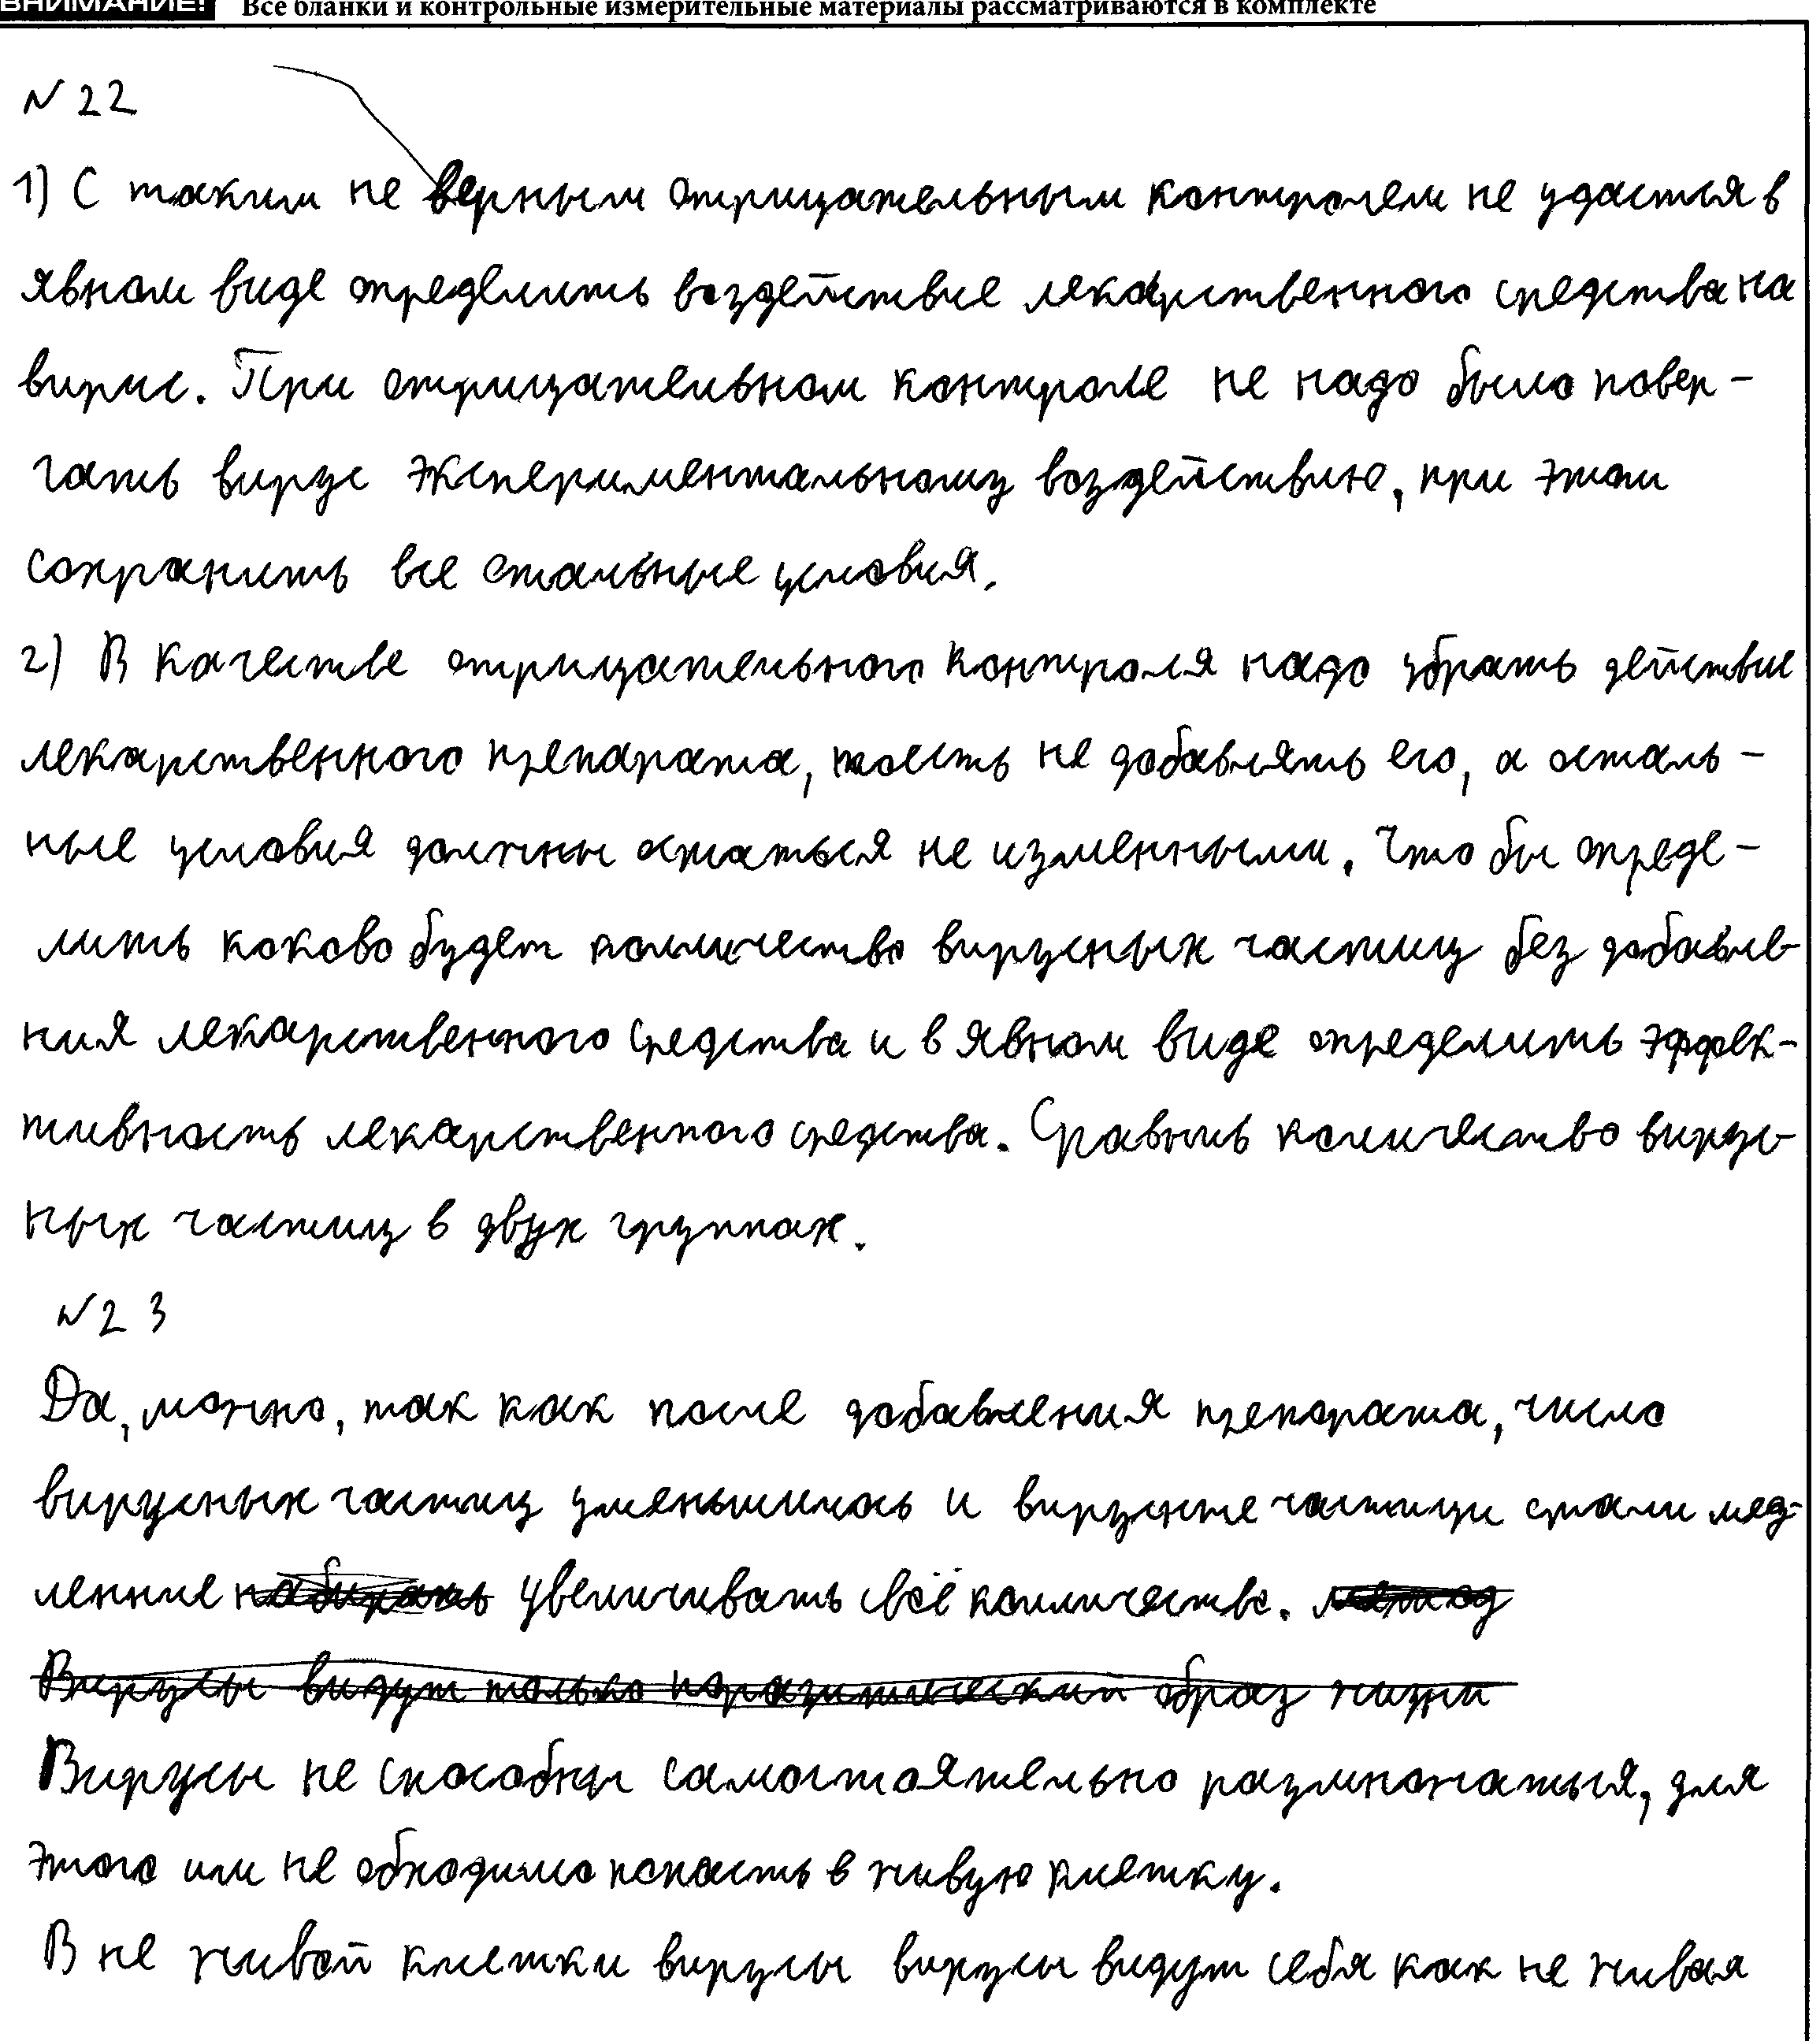 ВНИМАНИЕ! Все бланки и контрольные измерительные материалы рассматриваются в комплекте
№ 22
1) С таким не верным отрицательным контролем не удастся в
явном виде определить воздействие лекарственного средства на
вирус. При отрицательном контроле не надо было повер-
гать вирус экспериментальному воздействию, при этом
сохранить все стальные условия.
2) В качестве отрицательного контроля надо убрать действие
лекарственного препарата, тоесть не добавлять его, а осталь-
ные условия должны остаться не изменными. Что бы опреде-
лить каково будет колличество вирусных частиц без добавле-
ния лекарственного средства и в явном виде определить эффек-
тивность лекарственного средства. Сравить количество вирус-
ных частиц в двух группах.
№ 23
Да, можно, так как после добавления препарата, число
вирусных частиц уменьшилось и вирусные частицы стали мед-
леннее набирать увеличивать своё колличество. метод
Вирусы видут только паразитический образ жизни
Вирусы не способны самостоятельно размножаться, для
этого им не обходимо попасть в живую клетку.
В не живой клетки вирусы вирусы видут себя как не живая